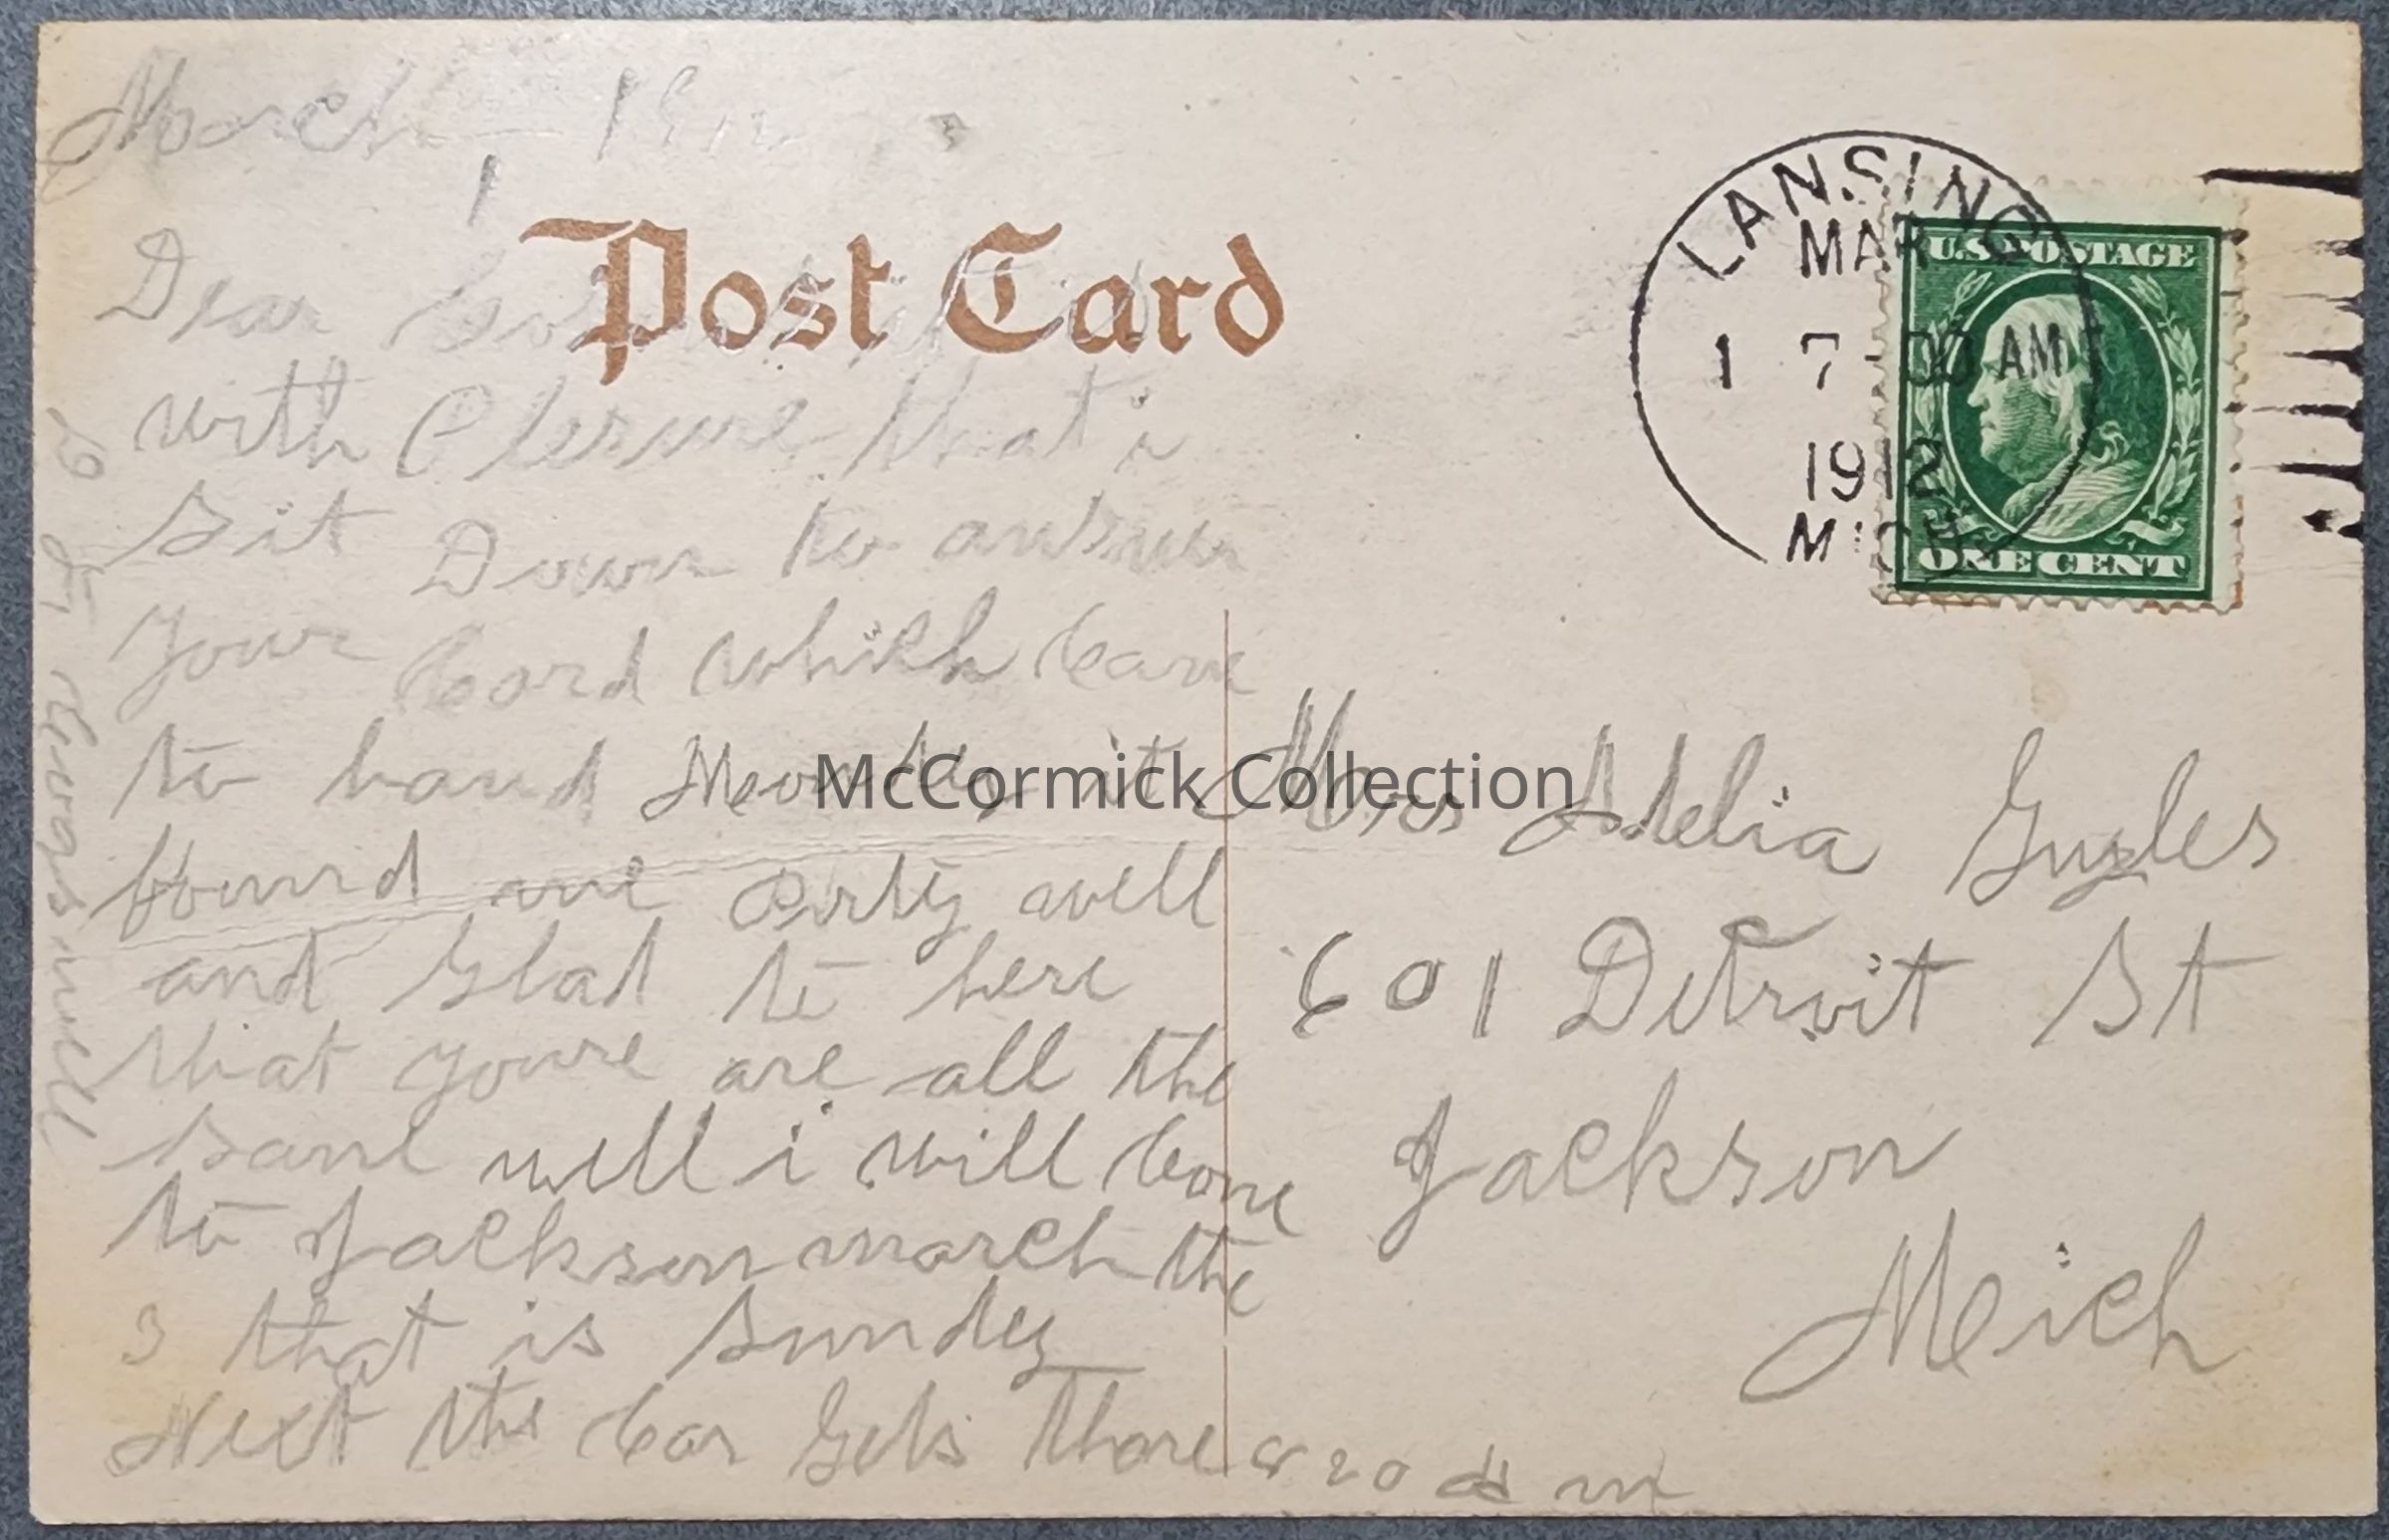 March 1 1912
Post Card
Dear
with Plesure that i
Sit Down to answer
your Card which Came
to hand it
found me Pirty well
and Glad to here
that youre are all the
same well i will Come
to Jackson march the
3 that is Sundey
Next the Car Gets thare 8 20 a m
LANSING
MAR
1 7-00 AM
1912
MICH
U.S. POSTAGE
ONE CENT
Mrs Adelia Guyles
601 Detroit St
Jackson
Mich
McCormick Collection